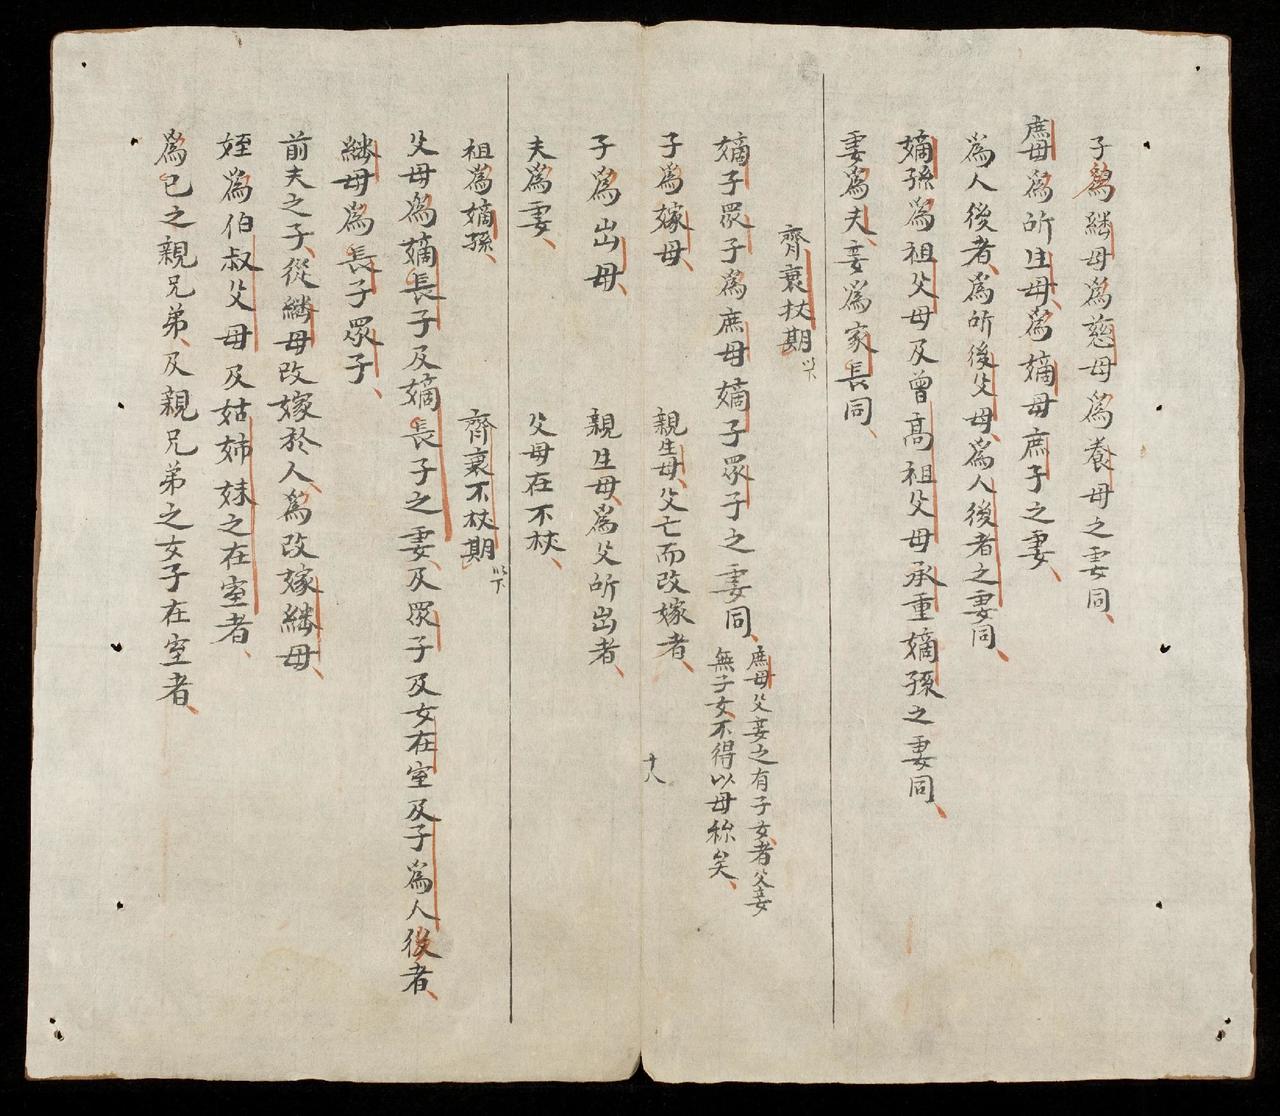 子爲繼母爲慈母爲養母之妻同
庶母爲所生母爲嫡母庶子之妻
爲人後者爲所後父母爲人後者之妻同
嫡孫爲祖父母及曾高祖父母承重嫡孫之妻同
妻爲夫妾爲家長同
齊衰杖期以下
嫡子眾子爲庶母嫡子眾子之妻同
庶母父妾之有子女者父妾
無子女不得以母称矣
子爲嫁母 親生母父亡而改嫁者
十八
子爲出母 親生母爲父所出者
夫爲妻 父母在不杖
齊衰不杖期以下
祖爲嫡孫
父母爲嫡長子及嫡長子之妻及眾子及女在室及子爲人後者
繼母爲長子眾子
前夫之子從繼母改嫁於人爲改嫁繼母
姪爲伯叔父母及姑姉妹之在室者
爲己之親兄弟及親兄弟之女子在室者